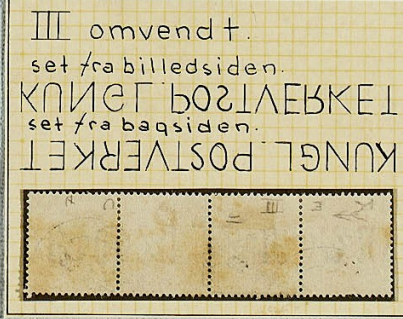 III omvendt.
set fra billedsiden.
KUNGL. POSTVERKET
set fra bagsiden.
KUNGL. POSTVERKET